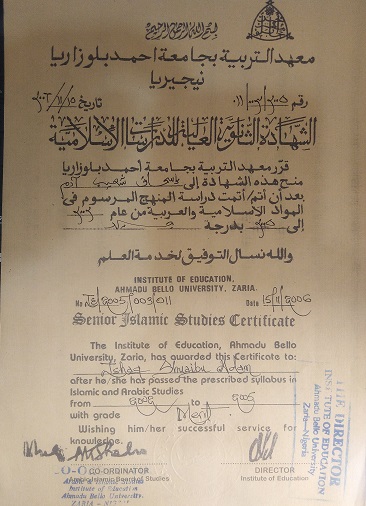 بسم الله الرحمن الرحيم
معهد التربية بجامعة احمد بلو زاريا
نيجيريا
رقم
تاريخ
الشهادة الثانوية العالية للدراسات الاسلامية
قرر معهد التربية بجامعة أحمد بلو زاريا
منح هذه الشهادة إلى إسحاق شعيب آدم
بعد ان أتم/أتمت دراسة المنهج المرسوم في
المواد الاسلامية والعربية من عام
إلى بدرجة
والله نسال التوفيق لخدمة العلم
INSTITUTE OF EDUCATION,
AHMADU BELLO UNIVERSITY, ZARIA.
No Date 15/11/2006
Senior Islamic Studies Certificate
The Institute of Education, Ahmadu Bello
University, Zaria, has awarded this Certificate to:
Ishaq Shuaibu Adam
after he/she has passed the prescribed syllabus in
Islamic and Arabic Studies
from to 2005
with grade Merit
Wishing him/her successful service for
knowledge.
CO-ORDINATOR
Arabic Islamic Board of Studies
Institute of Education
Ahmadu Bello University,
ZARIA
DIRECTOR
Institute of Education
THE DIRECTOR
INSTITUTE OF EDUCATION
Ahmadu Bello University
Zaria-Nigeria